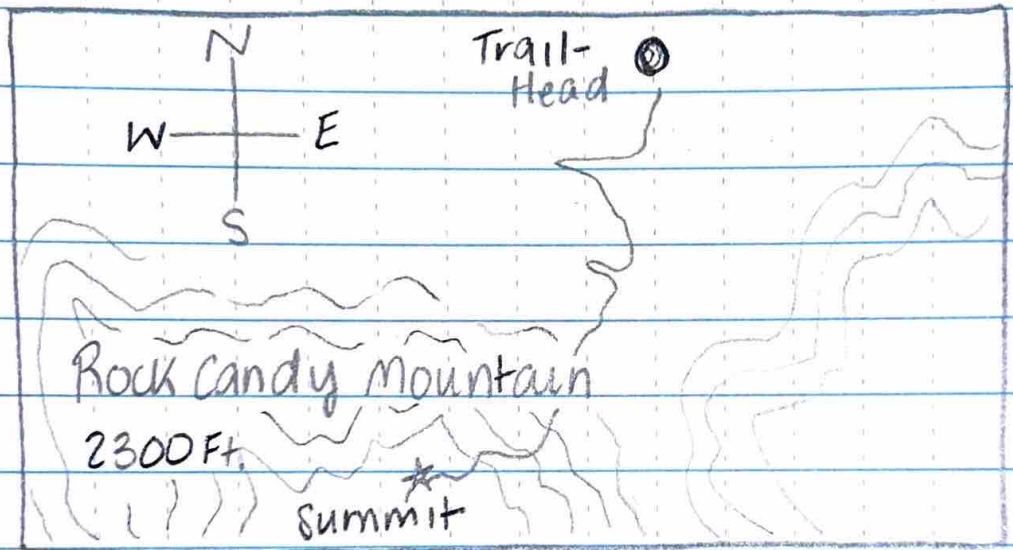 N
Trail-
Head
W E
S
Rock Candy Mountain
2300 Ft.
Summit